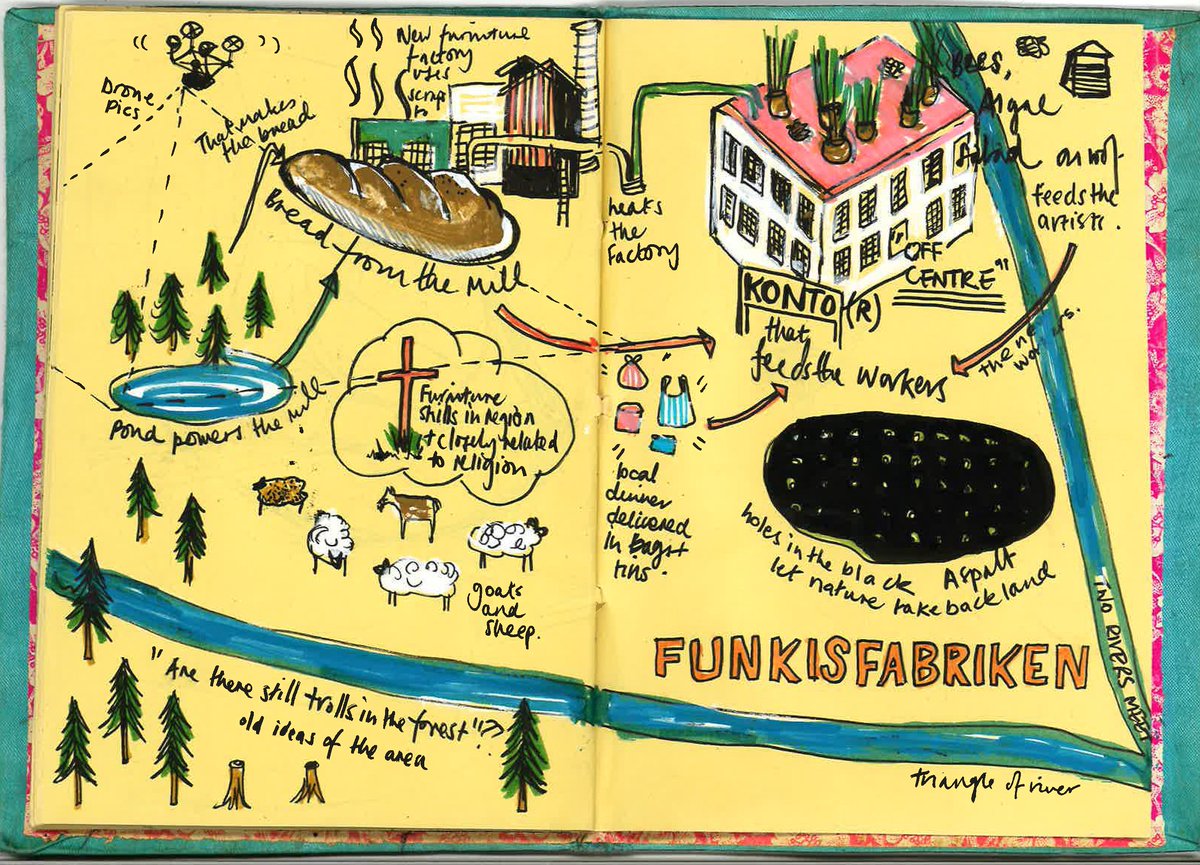 Drone
pics
New furniture
factory
uses
scrap
to
That makes
the bread
Bread from the mill
Pond powers the mill
Furniture
skills in region
+ closely related
to religion
goats
and
sheep.
"Are there still trolls in the forest"?
old ideas of the area
heats
the
Factory
Bees,
Algae
on roof
feeds the
artists.
"OFF
CENTRE"
KONTO(R)
that
feeds the workers
then
local
dinner
delivered
in bags +
tins.
holes in the black Aspalt
let nature take back land
FUNKISFABRIKEN
TWO RIVERS MEET
triangle of river